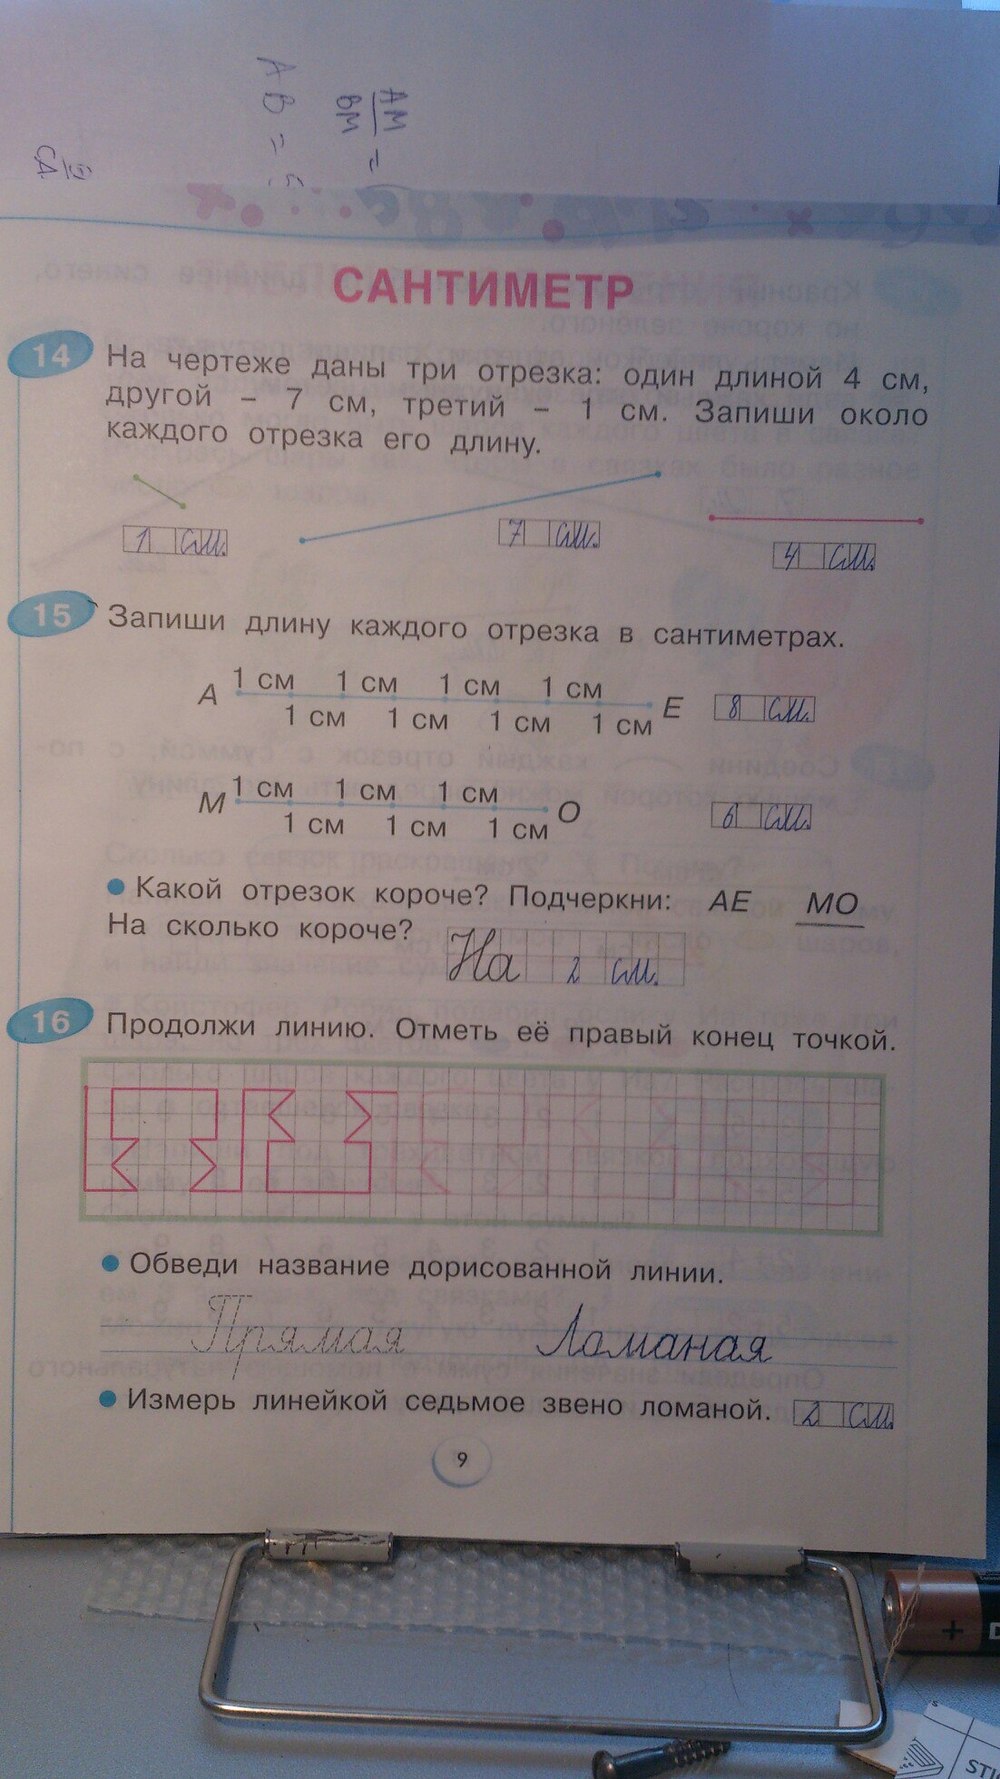 АМ
ВМ =
А В =
САНТИМЕТР
14 На чертеже даны три отрезка: один длиной 4 см,
другой – 7 см, третий – 1 см. Запиши около
каждого отрезка его длину.
1 см. 7 см. 4 см.
15 Запиши длину каждого отрезка в сантиметрах.
1 см 1 см 1 см 1 см
А Е 8 см.
1 см 1 см 1 см 1 см
1 см 1 см 1 см
М О 6 см.
1 см 1 см 1 см
Какой отрезок короче? Подчеркни: АЕ МО
На сколько короче? На 2 см.
16 Продолжи линию. Отметь её правый конец точкой.
Обведи название дорисованной линии.
Прямая Ломаная
Измерь линейкой седьмое звено ломаной. 2 см.
9
+